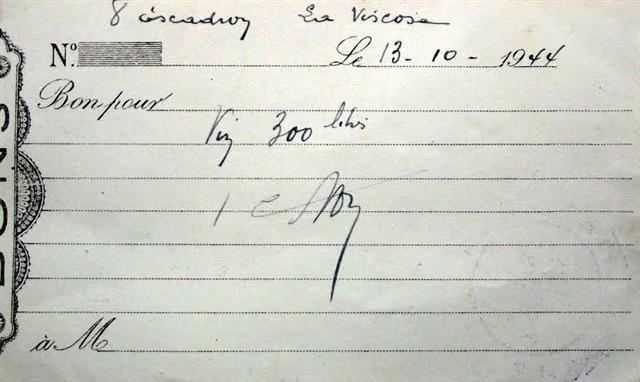 8 éscadron La Viscose
N° Le 13-10-1944
Bon pour
Vin 300 litres
à M
BONS